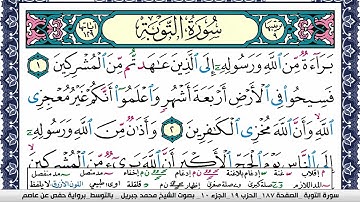 سُورَةُ التَّوْبَةِ
بَرَاءَةٌ مِّنَ ٱللَّهِ وَرَسُولِهِۦٓ إِلَى ٱلَّذِينَ عَٰهَدتُّم مِّنَ ٱلْمُشْرِكِينَ ١
فَسِيحُوا۟ فِى ٱلْأَرْضِ أَرْبَعَةَ أَشْهُرٍ وَٱعْلَمُوٓا۟ أَنَّكُمْ غَيْرُ مُعْجِزِى
ٱللَّهِ وَأَنَّ ٱللَّهَ مُخْزِى ٱلْكَٰفِرِينَ ٢ وَأَذَٰنٌ مِّنَ ٱللَّهِ وَرَسُولِهِۦٓ
إِلَى ٱلنَّاسِ يَوْمَ ٱلْحَجِّ ٱلْأَكْبَرِ أَنَّ ٱللَّهَ بَرِىٓءٌ مِّنَ ٱلْمُشْرِكِينَ
سورة التوبة . الصفحة ١٨٧ الحزب ١٩ . الجزء ١٠ . بصوت الشيخ محمد جبريل . بالتوسط . برواية حفص عن عاصم